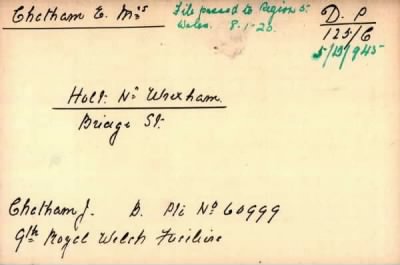 Chetham E. Mrs
File passed to Region 5.
Wales. 8.1.20.
D. P
125/C
5/13/945
Holt: Nr Wrexham.
Bridge St.
Chetham J. B. Pte No 60999
9th Royal Welch Fusilire